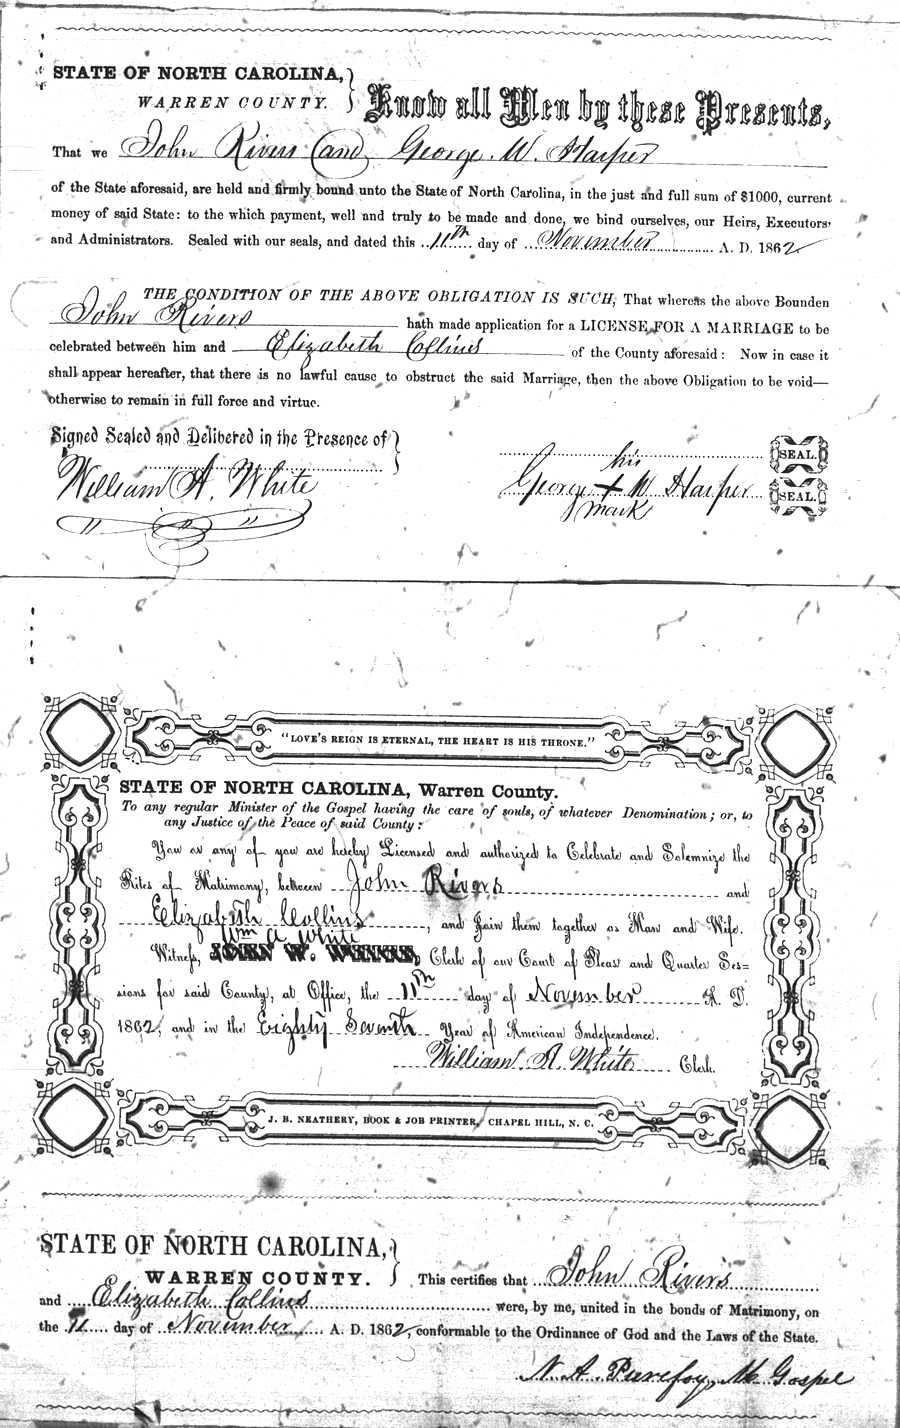 STATE OF NORTH CAROLINA,
WARREN COUNTY.
Know all Men by these Presents,
That we John Rivers and George W. Harper
of the State aforesaid, are held and firmly bound unto the State of North Carolina, in the just and full sum of $1000, current
money of said State: to the which payment, well and truly to be made and done, we bind ourselves, our Heirs, Executors,
and Administrators. Sealed with our seals, and dated this 11th day of November A. D. 1862
THE CONDITION OF THE ABOVE OBLIGATION IS SUCH, That whereas the above Bounden
John Rivers hath made application for a LICENSE FOR A MARRIAGE to be
celebrated between him and Elizabeth Collins of the County aforesaid: Now in case it
shall appear hereafter, that there is no lawful cause to obstruct the said Marriage, then the above Obligation to be void—
otherwise to remain in full force and virtue.
Signed Sealed and Delibered in the Presence of
William A. White
SEAL.
his
George + W Harper SEAL.
mark
"LOVE'S REIGN IS ETERNAL, THE HEART IS HIS THRONE."
STATE OF NORTH CAROLINA, Warren County.
To any regular Minister of the Gospel having the care of souls, of whatever Denomination; or, to
any Justice of the Peace of said County:
You or any of you are hereby Licensed and authorized to Celebrate and Solemnize the
Rites of Matrimony, between John Rivers and
Elizabeth Collins, and Join them together as Man and Wife.
Wm A White
Witness, JOHN W. WHITE, Clerk of our Court of Pleas and Quarter Ses=
sions for said County, at Office, the 11th day of November A. D.
1862, and in the Eighty Seventh Year of American Independence.
William A. White Clerk.
J. B. NEATHERY, BOOK & JOB PRINTER, CHAPEL HILL, N. C.
STATE OF NORTH CAROLINA,
WARREN COUNTY.
This certifies that John Rivers
and Elizabeth Collins were, by me, united in the bonds of Matrimony, on
the 11 day of November A. D. 1862, conformable to the Ordinance of God and the Laws of the State.
N. A. Purefoy, M Gospel